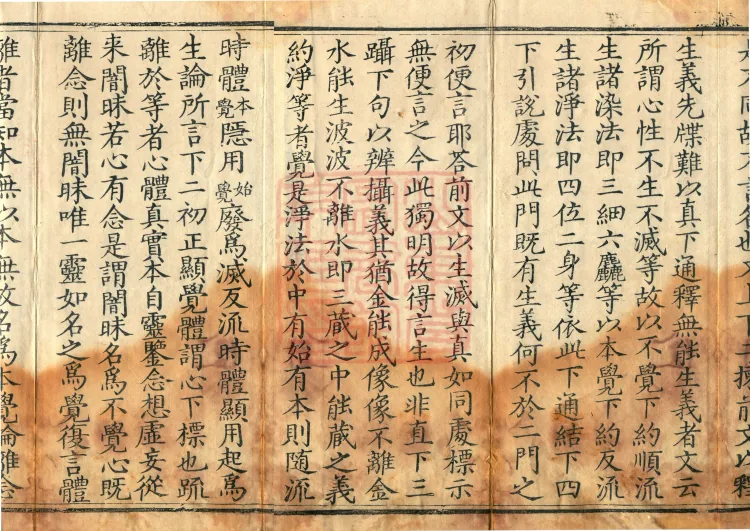 生義先牒難以真下通釋無能生義者文云
所謂心性不生不滅等故以不覺下約順流
生諸染法即三細六麤等以本覺下約反流
生諸淨法即四位二身等依此下通結下四
下引說處問此門既有生義何不於二門之
初便言耶荅前文以生滅與真如同處標示
無便言之今此獨明故得言生也非直下三
躡下句以辨攝義其猶金能成像像不離金
水能生波波不離水即三藏之中能藏之義
約淨等者覺是淨法於中有始有本則随流
時體本覺隱用始覺廢爲滅反流時體顯用起爲
生論所言下二初正顯覺體謂心下標也䟽
離於等者心體真實本自靈鑒念想虛妄從
来闇昧若心有念是謂闇昧名爲不覺心既
離念則無闇昧唯一靈如名之爲覺復言體
離者當知本無以本無故名爲本覺論離念